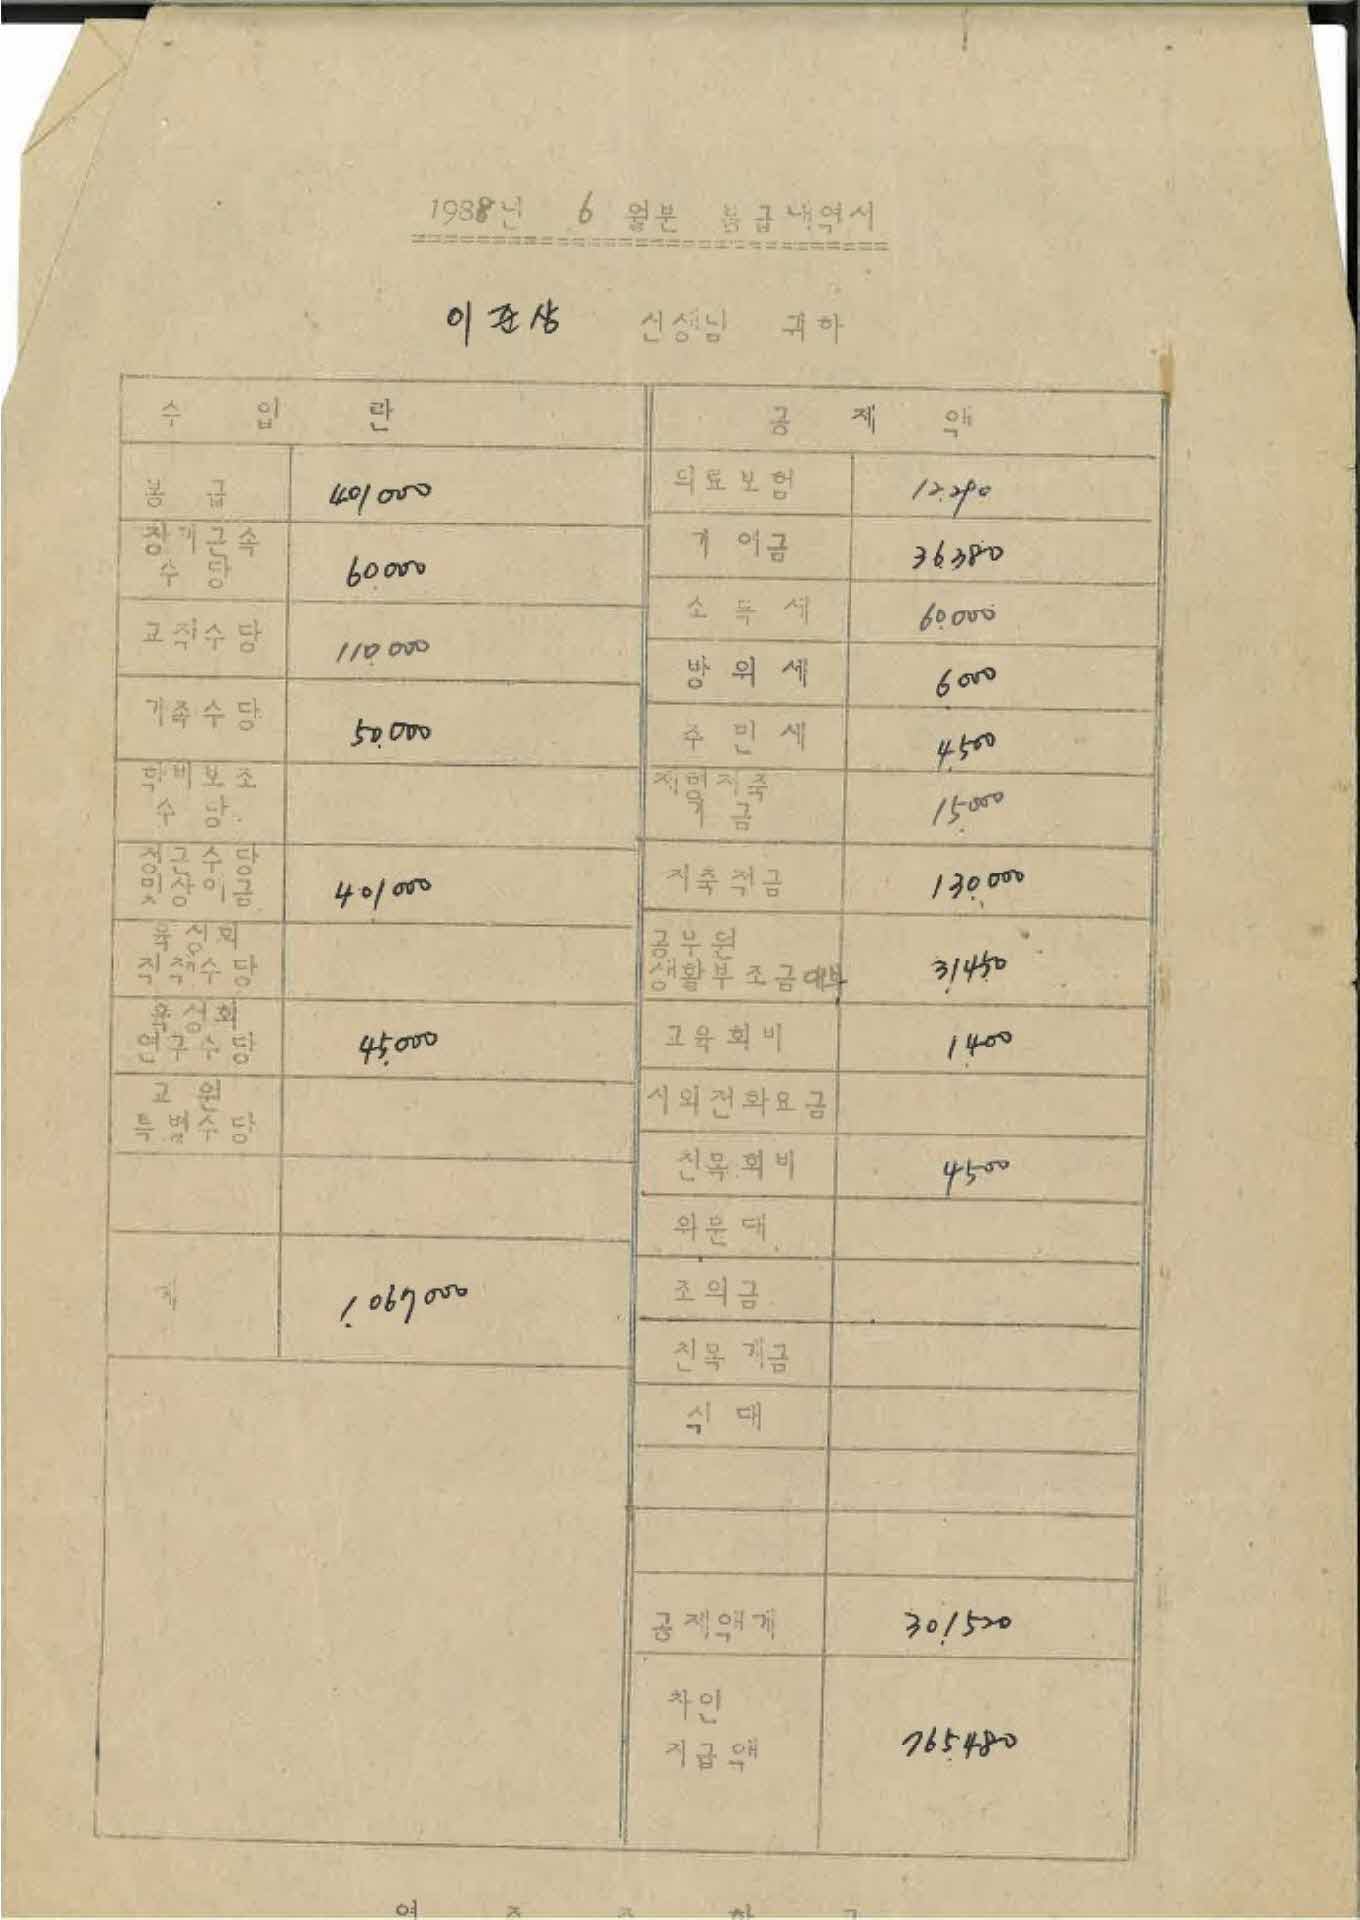 1988년 6 월분 봉급내역서
이준상 선생님 귀하
수 입 란
봉 급 401,000
장기근속 수당 60,000
교직수당 110,000
가족수당 50,000
학비보조 수당
정근수당 및상여금 401,000
육성회 직책수당
육성회 연구수당 45,000
교원 특별수당
계 1,067,000
공 제 액
의료보험 12,290
기여금 36,380
소득세 60,000
방위세 6,000
주민세 4,500
재형저축 기금 15,000
저축적금 130,000
공무원 생활부조금대부 31,450
교육회비 1,400
시외전화요금
친목회비 4,500
위문대
조의금
친목계금
식대
공제액계 301,520
차인 지급액 765,480